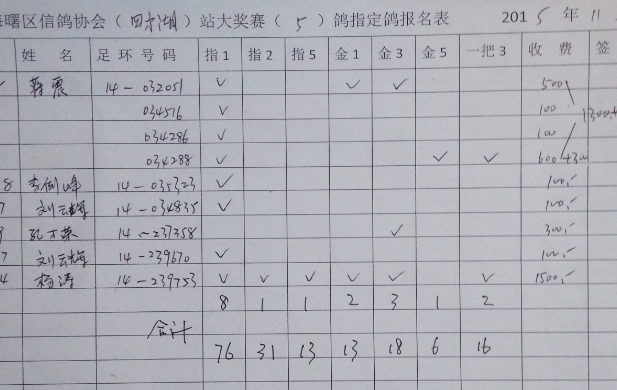 海曙区信鸽协会（四方湖）站大奖赛（5）鸽指定鸽报名表 2015年11
姓名 足环号码 指1 指2 指5 金1 金3 金5 一把3 收费 签
蒋震 14-032051 ✓ ✓ ✓ 500
034516 ✓ 100
034286 ✓ 100 1300
034288 ✓ ✓ ✓ 600+300
8 李剑峰 14-035323 ✓ 100,-
7 刘云梅 14-034835 ✓ 100,-
孔万荣 14-237358 ✓ 300,-
7 刘云梅 14-239670 ✓ 100,-
4 杨涛 14-239753 ✓ ✓ ✓ ✓ ✓ ✓ 1500,-
8 1 1 2 3 1 2
合计
76 31 13 13 18 6 16